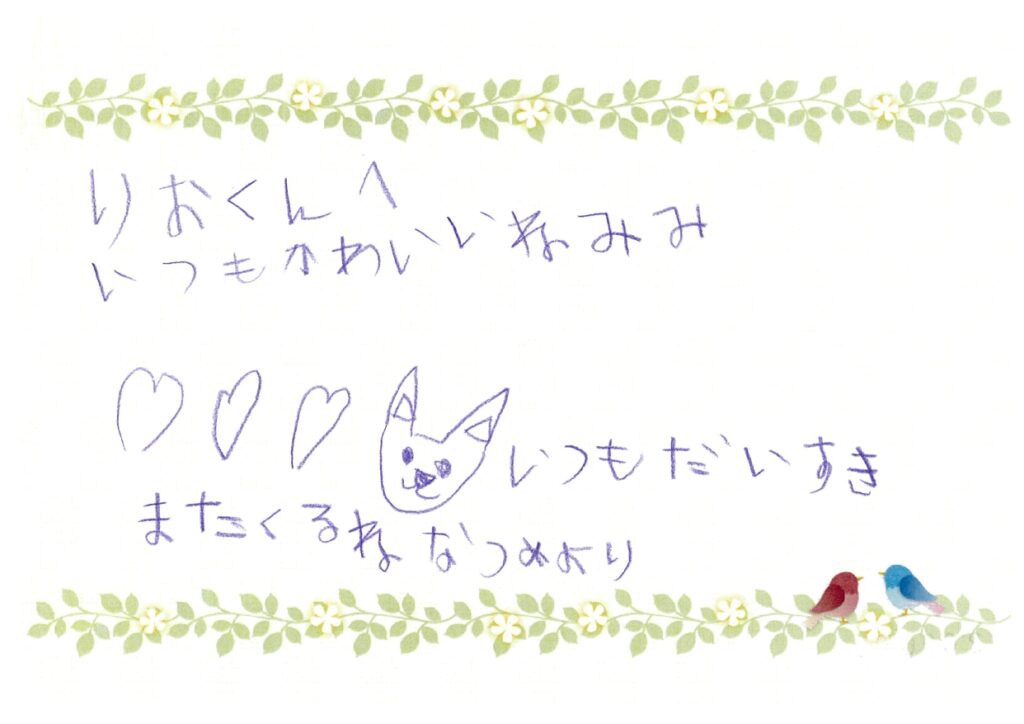 りおくんへ
いつもかわいいねみみ
いつもだいすき
またくるね なつめより